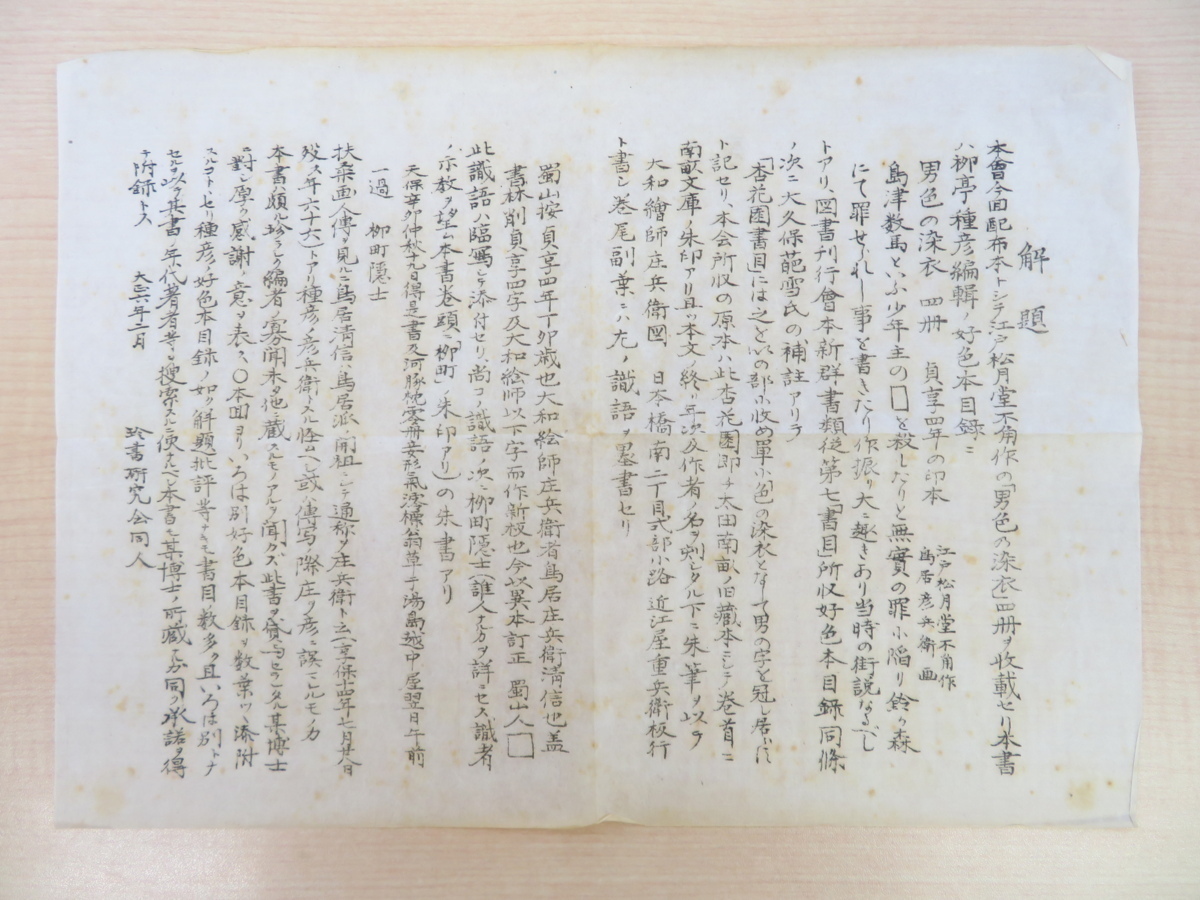 解題
本會今回配布本トシテ江戸松月堂不角作の「男色の染衣」四册ヲ收載セリ本書
ハ柳亭種彦編輯ノ好色本目録ニ
男色の染衣 四册 貞享四年の印本 江戸松月堂不角作 鳥居彦兵衛画
島津数馬といふ少年主の□を殺したりと無實の罪小陷り鈴ヶ森
にて罪せられし事を書きたり作振り大ニ趣きあり当時の街説なるべし
トアリ、図書刊行會本新群書類從第七「書目」所收好色本目録同條
ノ次ニ大久保葩雪氏の補註アリテ
「杏花園書目」には之といの部小收め單小色の染衣となして男の字を冠し居らず
ト記セリ、本会所收の原本ハ此杏花園即チ太田南畝ノ旧藏本ニシテ巻首ニ
南畝文庫ノ朱印アリ且ツ本文ノ終リ年次及作者ノ名ヲ刻シタル下ニ朱筆ヲ以テ
大和繪師庄兵衛図 日本橋南二丁目式部小路 近江屋重兵衛板行
ト書シ巻尾副葉ニハ左ノ識語ヲ墨書セリ
蜀山按貞享四年丁卯歳也大和絵師庄兵衛者鳥居庄兵衛淸信也蓋
書林削貞享四字及大和絵師以下字而作新板也今以異本訂正 蜀山人□
此識語ハ臨寫シテ添付セリ、尚コノ識語ノ次ニ柳町隠士(誰人ナルカヲ詳ニセズ識者
ノ示教ヲ望ム本書巻頭ニ「柳町」ノ朱印アリ)の朱書アリ
天保辛卯仲秋十九日得是書及河豚 零册妾形氣 横翁草ニ湯島越中屋翌日午前
一過 柳町隠士
扶桑画人傳ヲ見ルニ鳥居淸信ハ鳥居派ノ開祖ニシテ通称ヲ庄兵衛ト云(享保十四年七月廿八日
歿ス年六十六)トアリ種彦ノ彦兵衛トスル怪ムベシ或ハ傳写ノ際庄ヲ彦ニ誤マレルモノカ
本書ハ頗ル珍ラシク編者ノ寡聞未ダ他ニ藏スルモノアルヲ聞カズ此書ヲ貸与セラレタル某博士
ニ對シ厚ク感謝ノ意ヲ表ス、〇本回ヨリいろは別好色本目録ヲ数葉ヅヽ添附
スルコトヽセリ種彦ノ好色本目録ノ如ク解題批評等ナキモ書目数多ク且いろは別トナ
セルヲ以テ其書ノ年代著者等ヲ搜索スルニ便ナルベシ本書モ某博士ノ所藏ナルガ同ク承諾ヲ得
テ附録トス
大正六年二月 珍書研究会同人